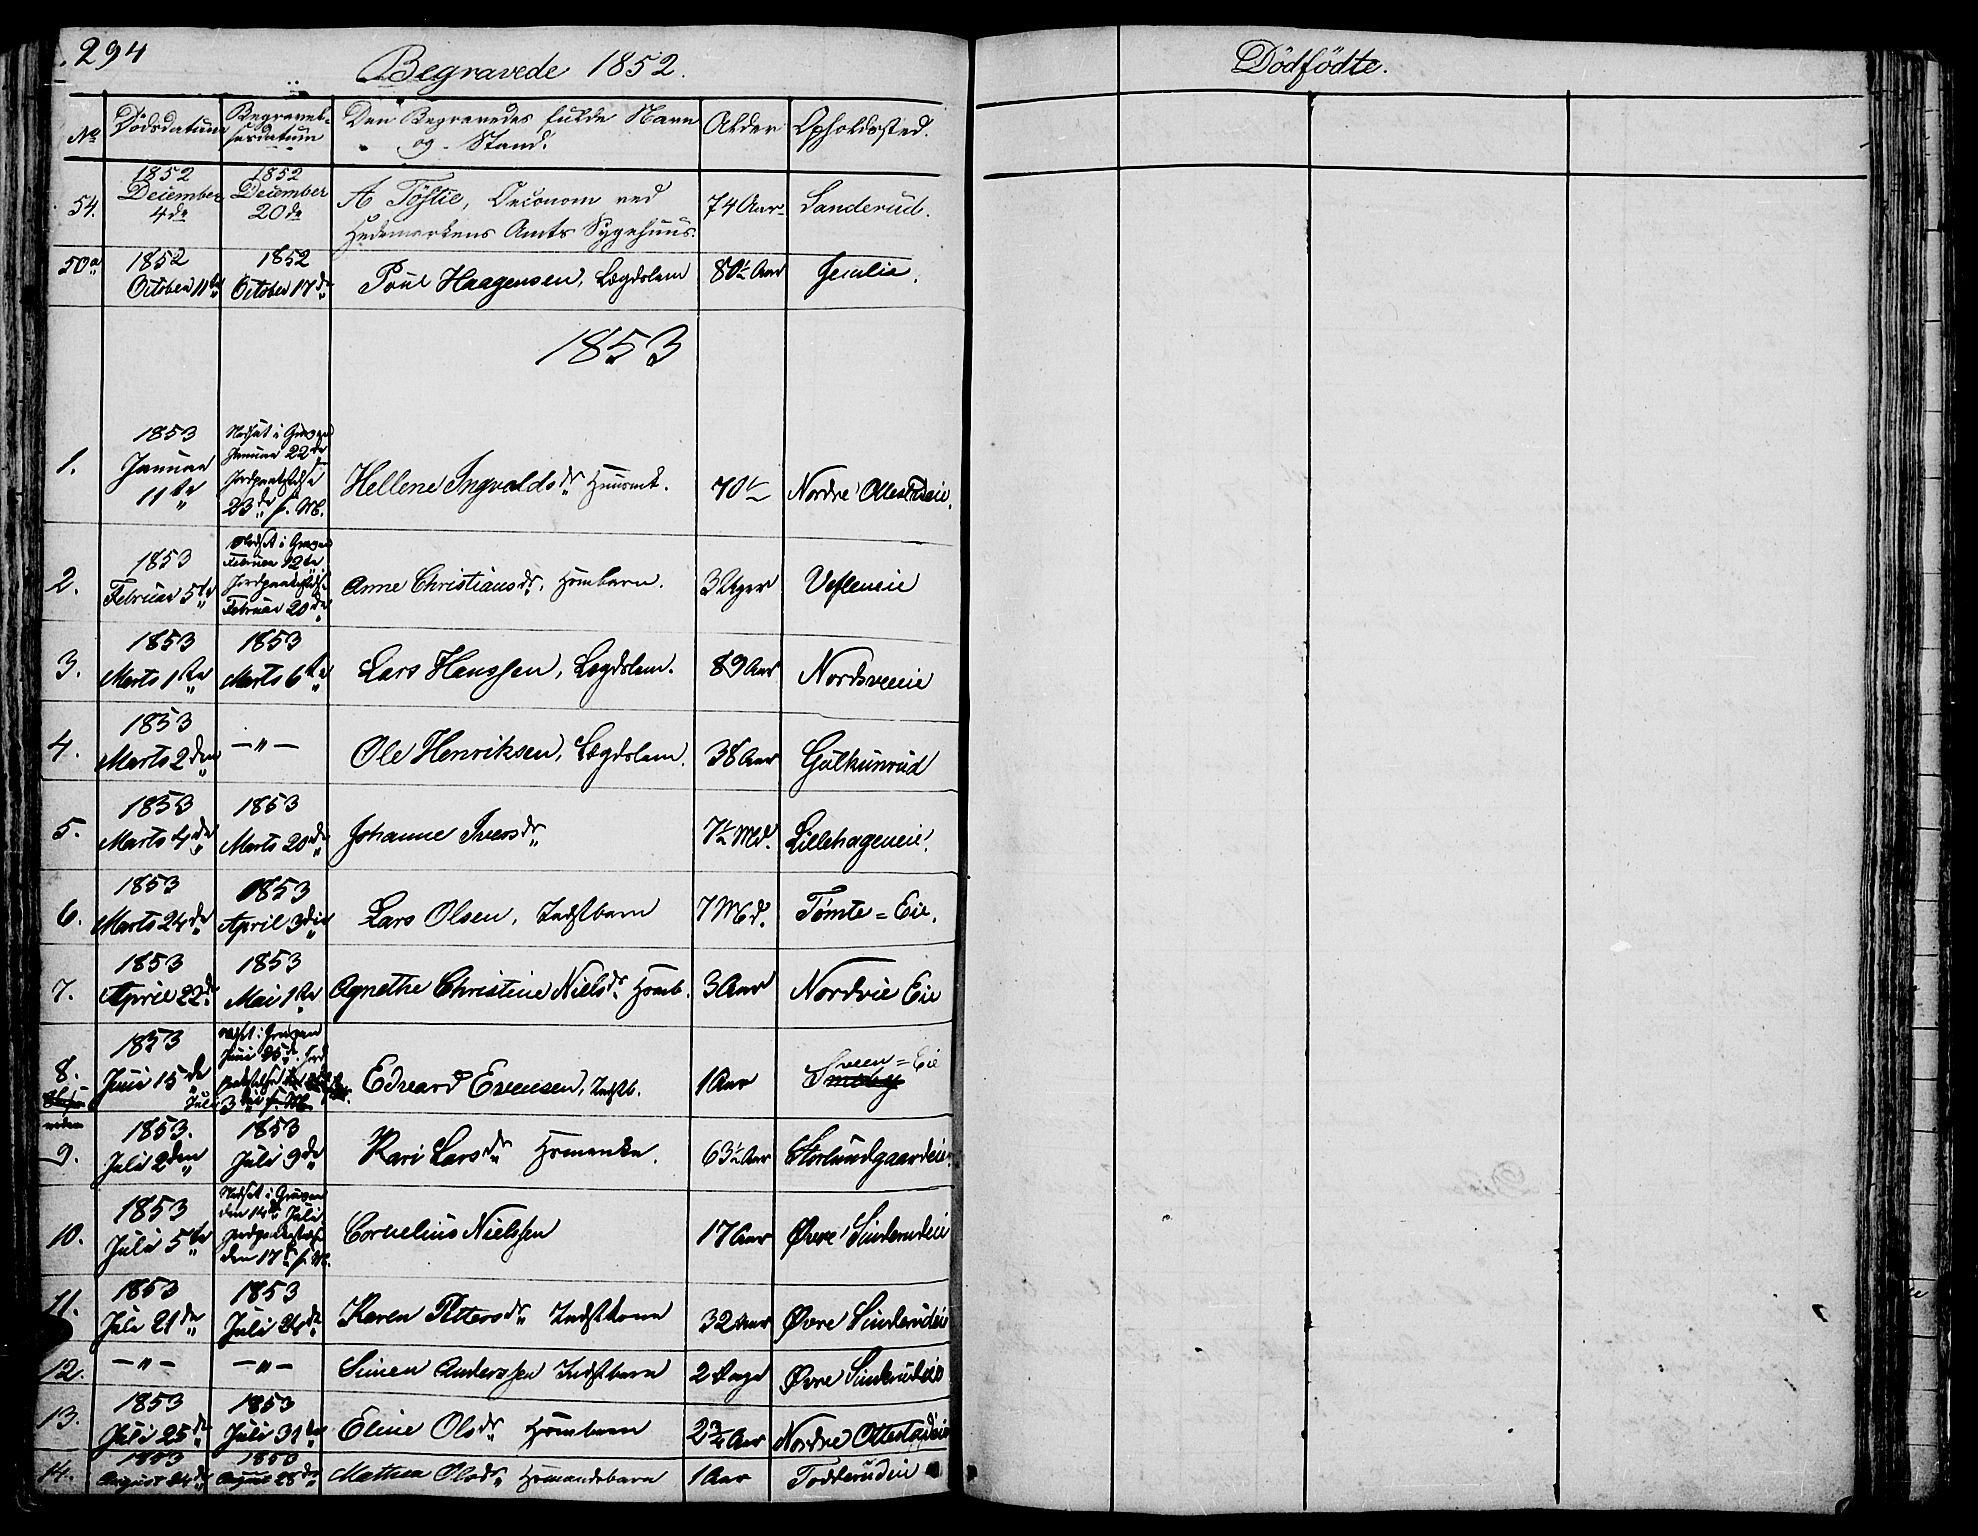 294
Begravede 1852.
No Dödsdatum Begravelsesdatum Den Begravedes fulde Navn og Stand. Alder Opholdssted.
54. 1852 December 4de 1852 December 20de A Töstie, Oeconom ved Hedemarkens Amts Sygehuus. 74 Aar Sanderud.
50a 1852 October 11te 1852 October 17de Poul Haagensen, Lægdslem 80½ Aar
1853
1. 1853 Januar 11te Nedsat i Graven Januar 22de Jordpaakastelse 23de s. M. Hellene Ingvaldsdr. Huusmk. 70 Nordre Ottestadeie.
2. 1853 Februar 5te Nedsat i Graven Februar 12te Jordpaakastelse Februar 20de Anne Christiansdr. Hsmbarn. 3 Uger
3. 1853 Marts 1ste 1853 Marts 6te Lars Hanssen, Lægdslem. 89 Aar Nordsveeie
4. 1853 Marts 2den —"— Ole Henriksen, Lægdslem. 38 Aar Gulkunrud
5. 1853 Marts 4de 1853 Marts 20de Johanne Iversdr. 7½ Md. Lillehageneie.
6. 1853 Marts 24de 1853 April 3die Lars Olsen, Indstbarn 7 Md. Tömte=Eie.
7. 1853 April 22de 1853 Mai 1ste Agnethe Christine Nielsdr. Hsmb. 3 Aar Nordvie Eie
8. 1853 Juni 15de Nedsat i Graven Juni 25de Juli 3die Edvard Evensen, Indstb. 1 Aar Sveen=Eie
9. 1853. Juli 2den 1853 Juli 9de Kari Larsdr. Hsmenke. 63½ Aar Storlundgaardeie.
10. 1853 Juli 5te Nedsat i Graven den 14de Juli den 17de s. M. Cornelius Nielssen 17 Aar Øvre Sinderudeie
11. 1853 Juli 21de 1853 Juli 24de Karen Pettersdr. Indstkone 32 Aar Øvre Sinderudeie
12. —"— —"— Simen Anderssen Indstbarn 2 Dage Øvre Sinderudeie
13. 1853 Juli 25de 1853 Juli 31te Eline Olsdr. Hsmbarn 2¾ Aar Nordre Ottestadeie
14. 1853 August 24de 1853 August 28de Mathea Olsdr. Hsmandsbarn 1 Aar Todderudeie
Dödfödte.